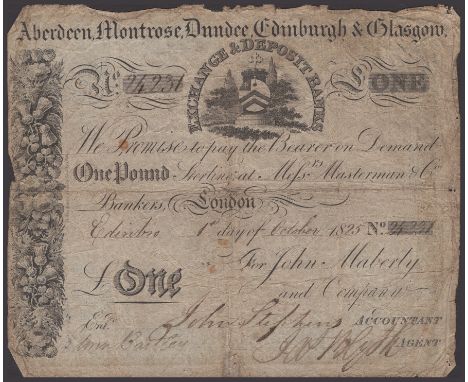 Aberdeen, Montrose, Dundee, Edinburgh & Glasgow.
EXCHANGE & DEPOSIT BANKS
No. 24,231 £ ONE
We Promise to pay the Bearer on Demand
One Pound Sterling at Messrs. Masterman & Co.
Bankers, London
Edinbro 1st day of October 1825 No. 24,231
£ One For John Maberly
and Company
Entd. John Stephens ACCOUNTANT
AGENT